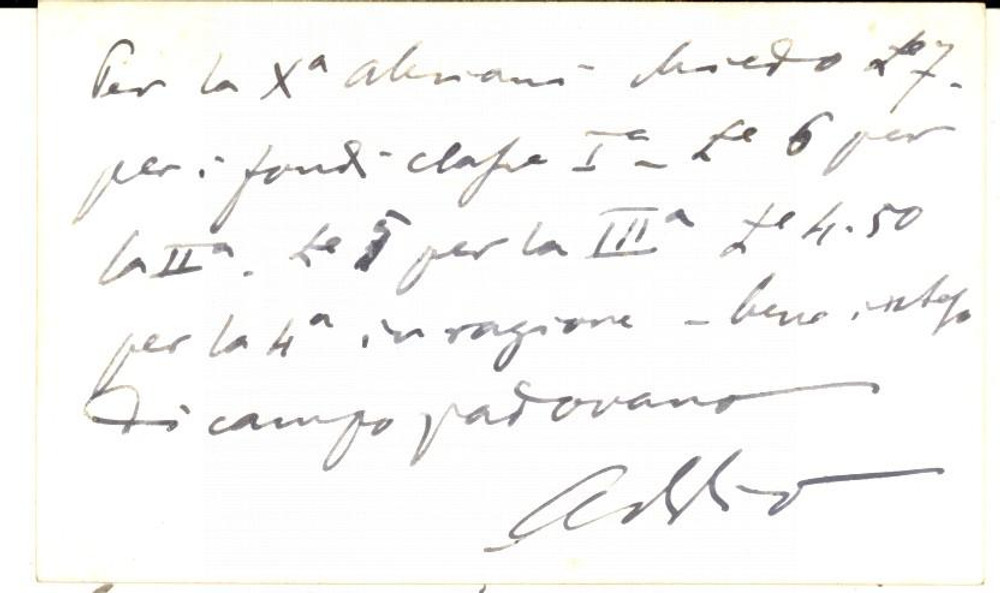 Per la Xª chiedo Le 7.
per i fondi classe Iª – Le 6 per
la IIª. Le 5 per la IIIª Le 4.50
per la 4ª in ragione – bene inteso
di campo padovano
Addio